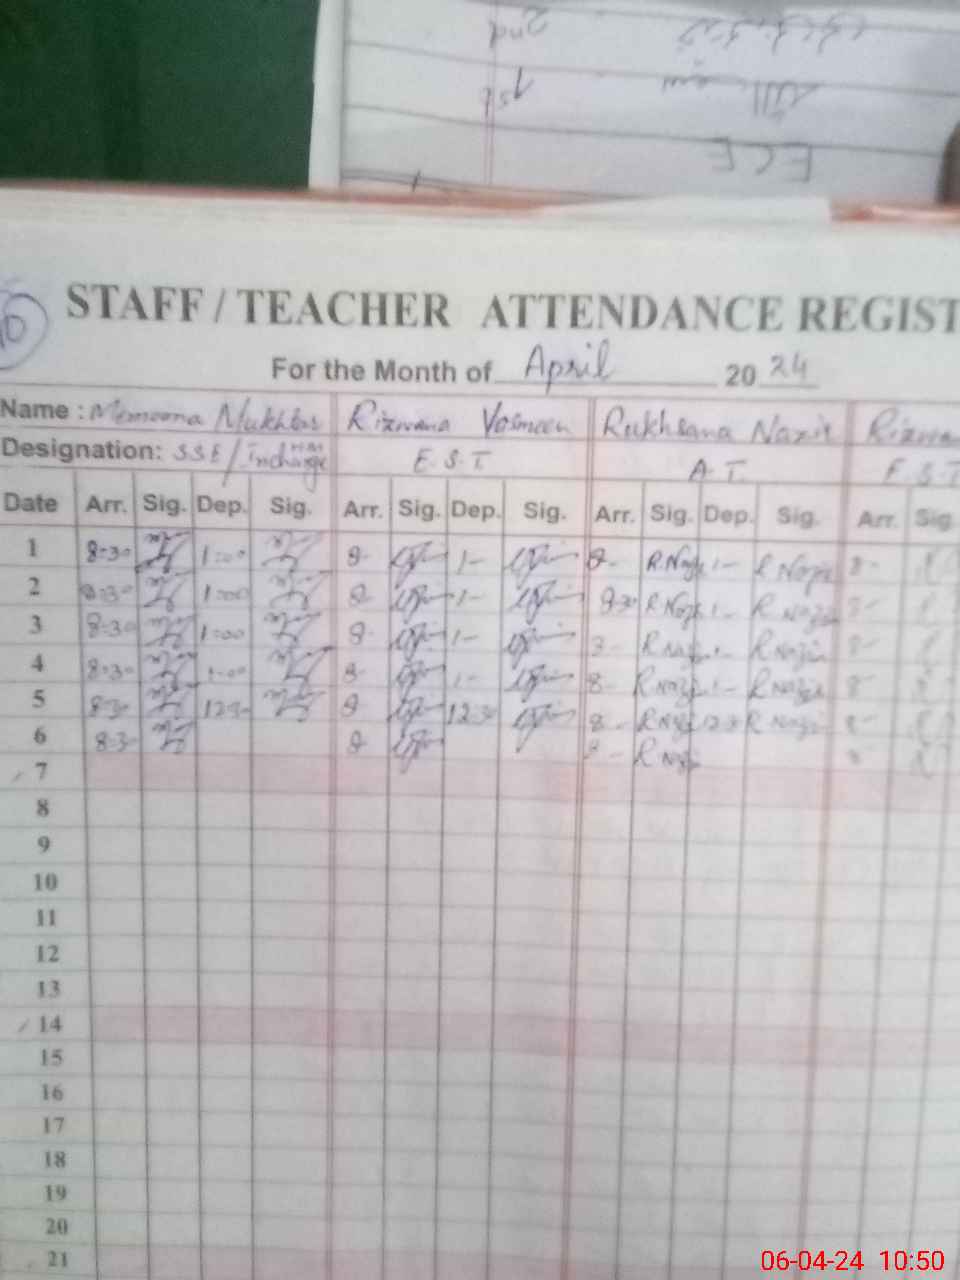 2nd
1st
ECE
10
STAFF / TEACHER ATTENDANCE REGIST
For the Month of April 2024
Name : Memoona Mukhtar Rizwana Yasmeen Rukhsana Nazir Rizwa
Designation: SSE / Incharge HM E.S.T. A.T. E.S.T
Date Arr. Sig. Dep. Sig. Arr. Sig. Dep. Sig. Arr. Sig. Dep. Sig. Arr. Sig
1 8:30 1:00 8- 1- 8- R Nazir 1- R Nazir 8-
2 8:30 1:00 8- 1- 8:30 R Nazir 1- R Nazir 8-
3 8:30 1:00 8- 1- 8- R Nazir 1- R Nazir 8-
4 8:30 1:00 8- 1- 8- R Nazir 1- R Nazir 8-
5 8:30 12:30 8 12:30 8- R Nazir 12:30 R Nazir 8-
6 8:30 8 8- R Nazir 8
7
8
9
10
11
12
13
14
15
16
17
18
19
20
21
06-04-24 10:50